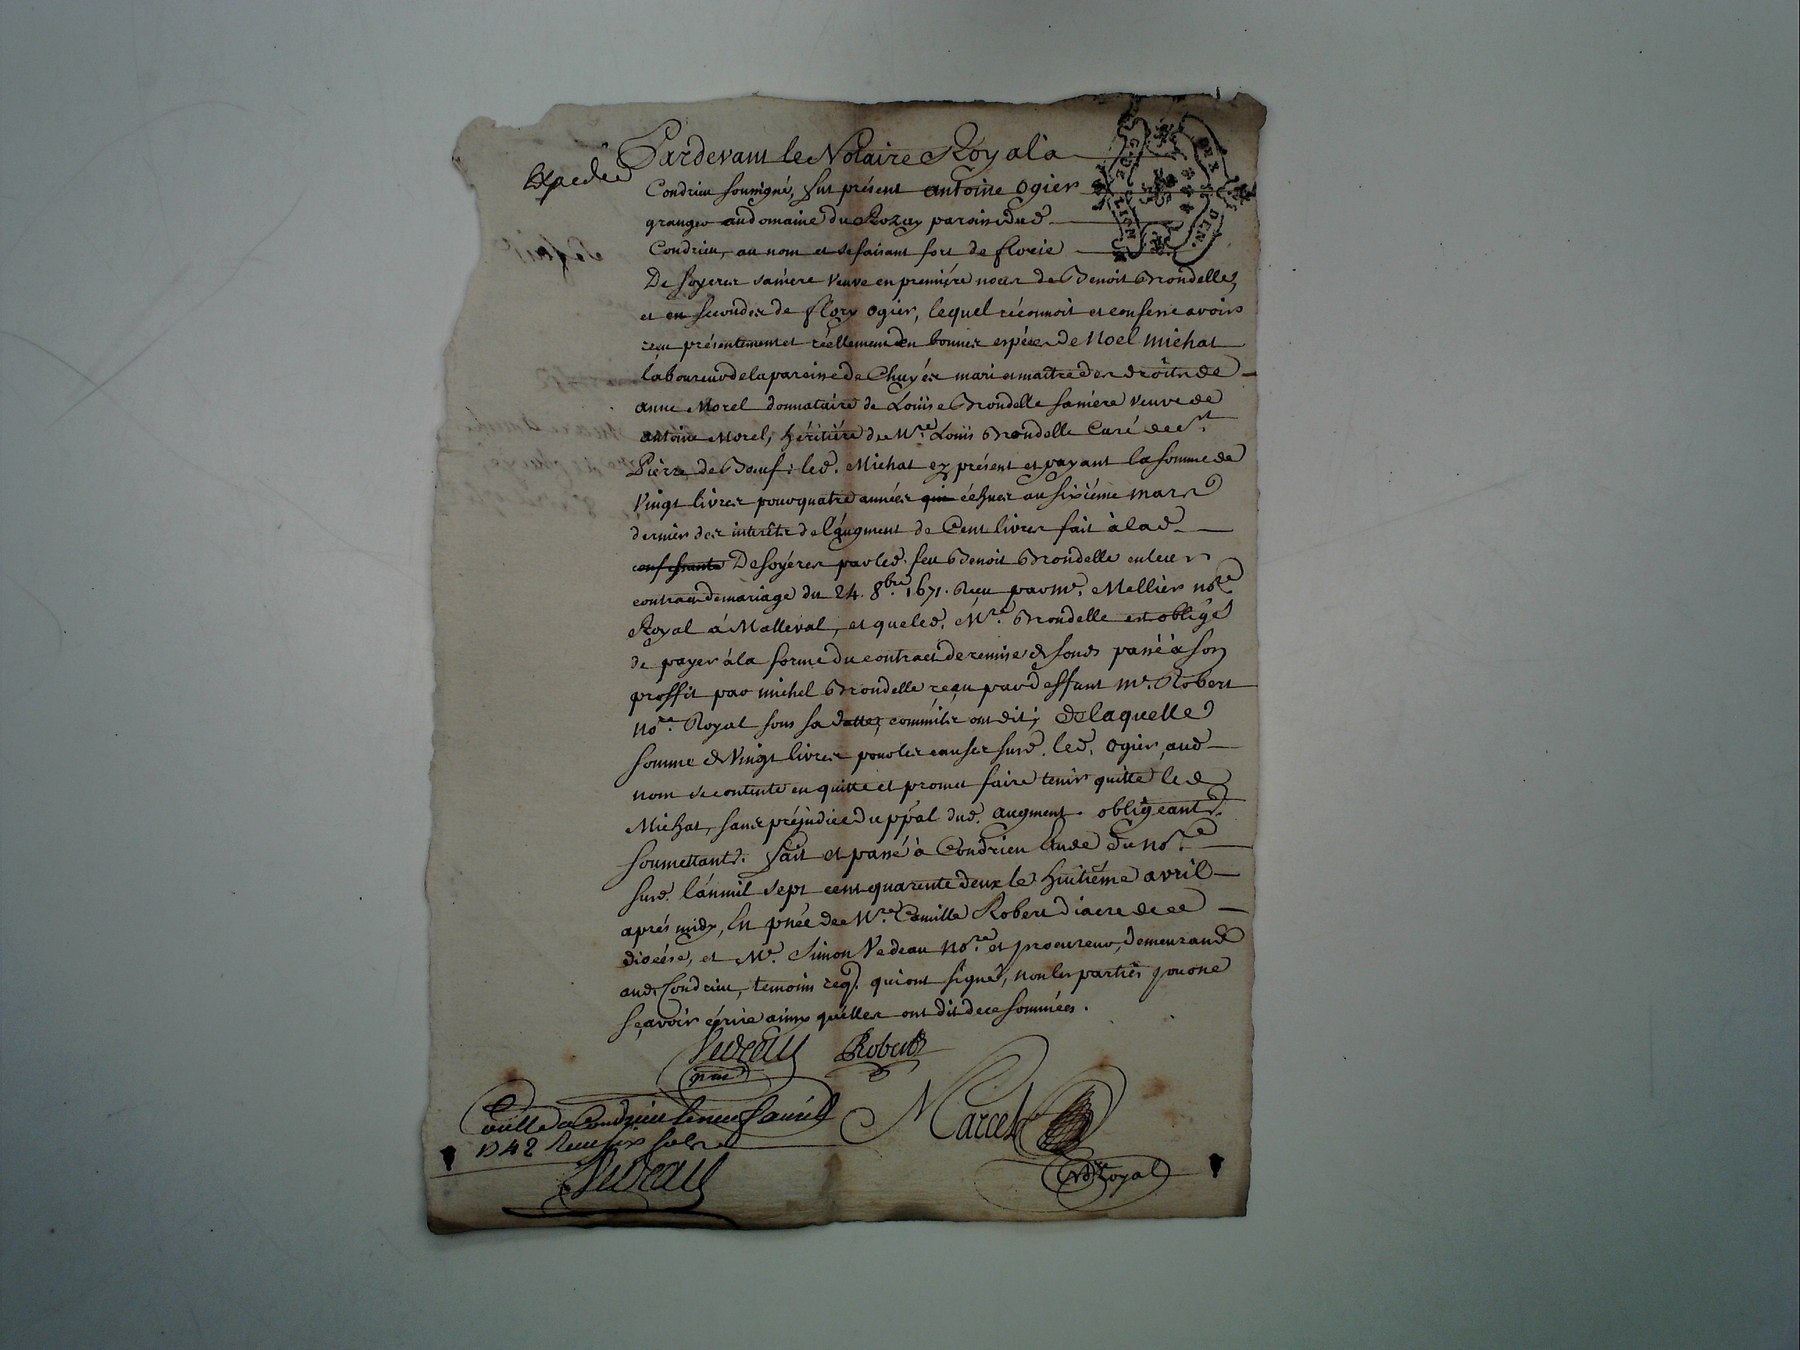 Expediée
Pardevant le Notaire Royal à
Condrieu sousigné, fut présent antoine ogier
granger audomaine du Rozay paroisse dud.
Condrieu, au nom et se faisant fort de florie
De soyeres sa mère veuve en première noces de Benoit Brondelle,
et en secondes de flory ogier, lequel réconnoit et confesse avoir
reçu présentement et réellement en bonnes espéces de Noel michat
laboureur de la paroisse de Chuyés mari et maître des droits de
anne Morel donnataire de Loüise Brondelle sa mère veuve de
antoine Morel, héritière de Mre. Loüis Brondelle Curé de st
Pierre de Boeuf: led. Michat cy présent et payant la somme de
vingt livres pour quatre années qui échues au sixiéme mars
dernier des interêts de l'augment de Cent livres fait à lad.
confessante De soyéres par led. feu Benoit Brondelle en leur
contract de mariage du 24. 8bre. 1671. Reçu par me. Mellier nore
Royal à Malleval, et que led. Mre. Brondelle est obligé
de payer à la forme du contract de remise de fonds passé à son
proffit par michel Brondelle reçu par deffunt me. Robert
nore. Royal sous sa datte, comm'ils ont dit; de laquelle
somme de vingt livres pour les causes susd. led. ogier, aud.
nom se contente en quitte et promet faire tenir quitte led.
Michat, sans préjudice du ppál dud. augment. obligeants.
soumettants. fait et passé à Condrieu Etude du nore.
susd. l'an mil sept cent quarente deux le huitiéme avril
aprés midy, En pñce de Mre. Camille Robert diacre de ce
diocése, et Me. Simon Vedeau nore. et procureur, demeurants
aud. Condrieu, temoins req. qui ont signé, non les parties pour ne
sçavoir écrire ainsy qu'elles ont dit de ce sommées.
Vedeau Robert
nre
Marcel
nore Royal
Cellé à Condrieu le neuf avril
1742 Reçu six sols
Vedeau